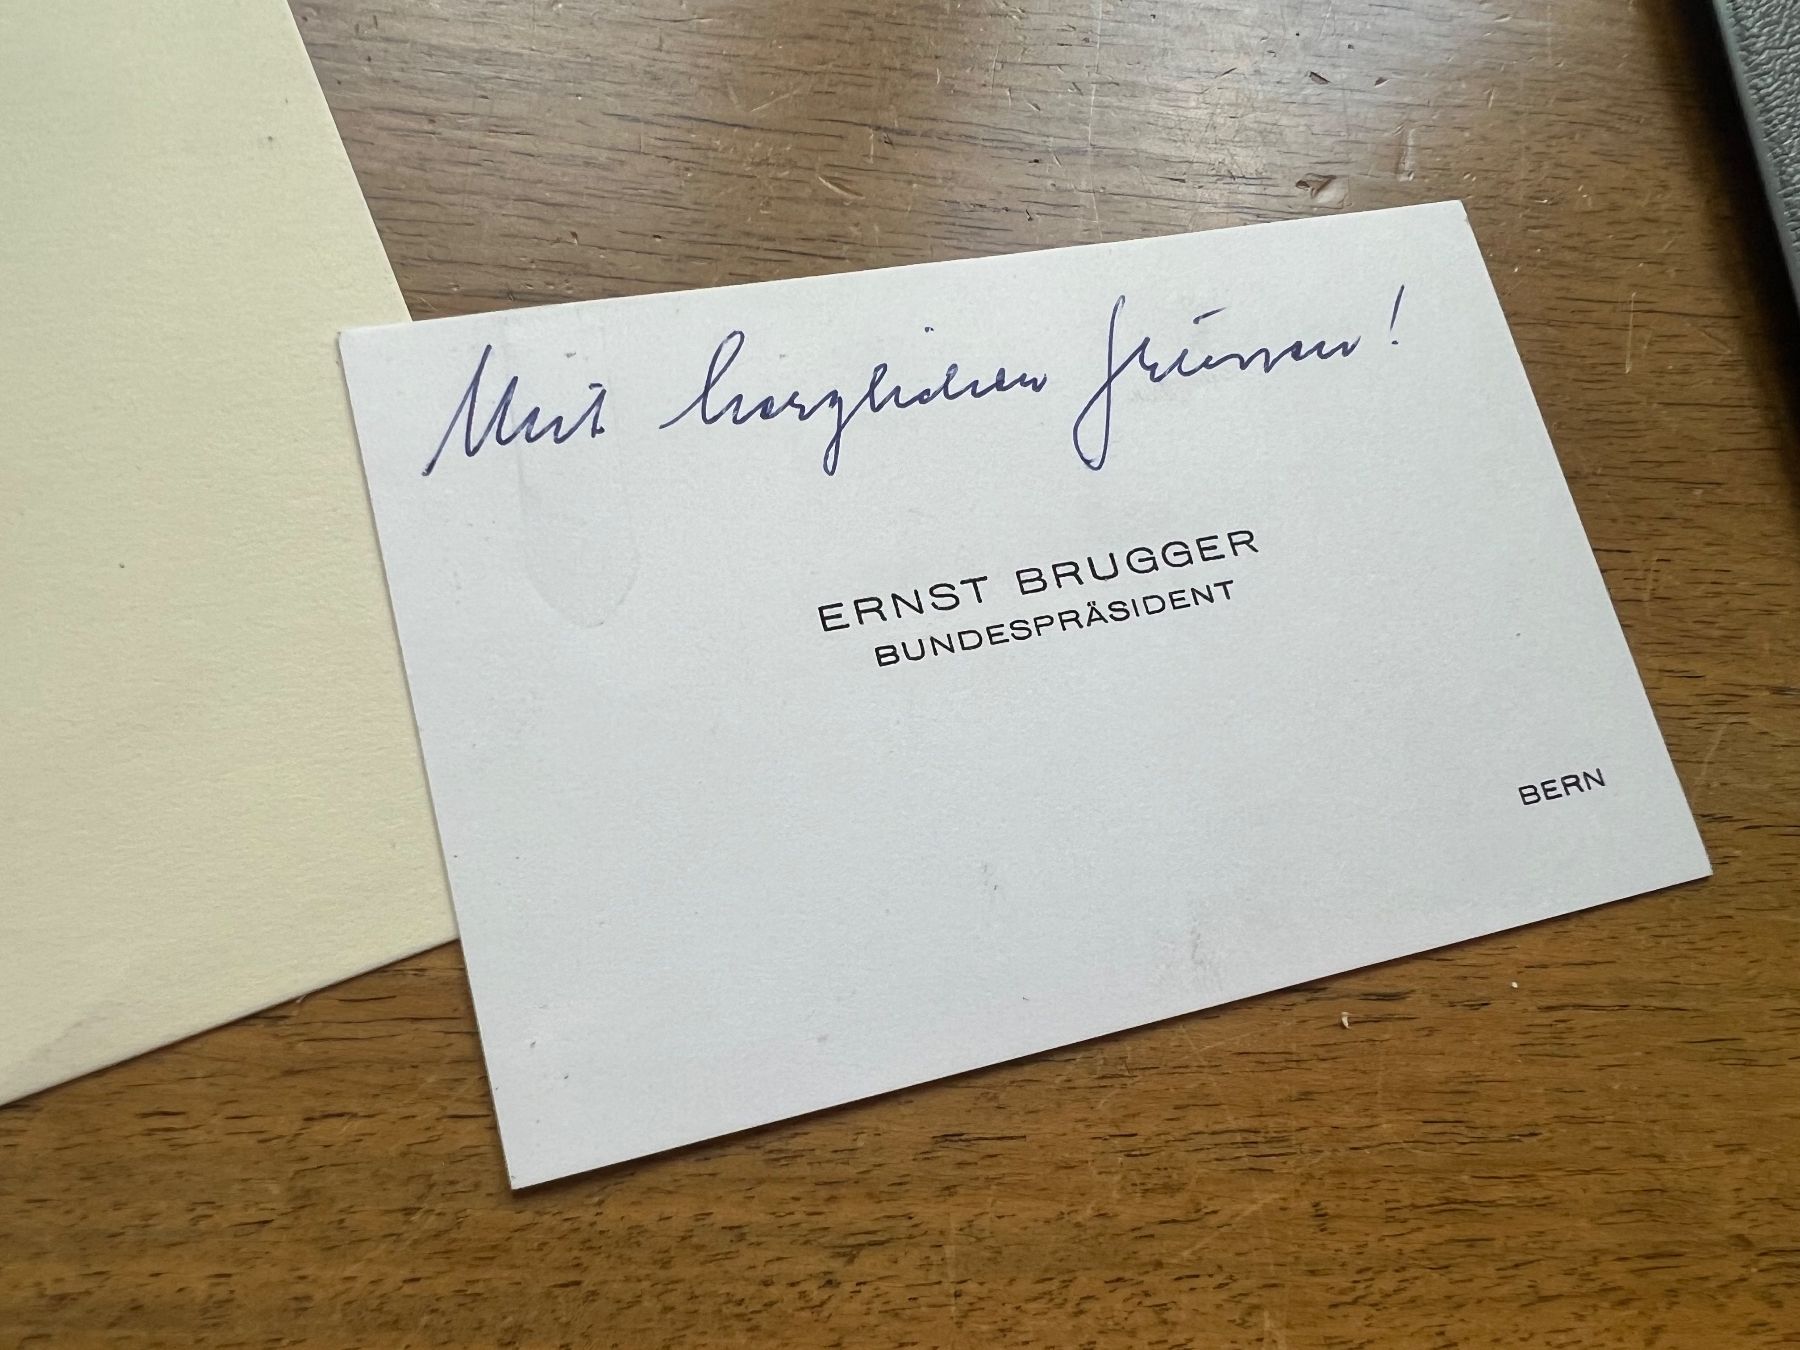 Mit herzlichen Grüssen!
ERNST BRUGGER
BUNDESPRÄSIDENT
BERN